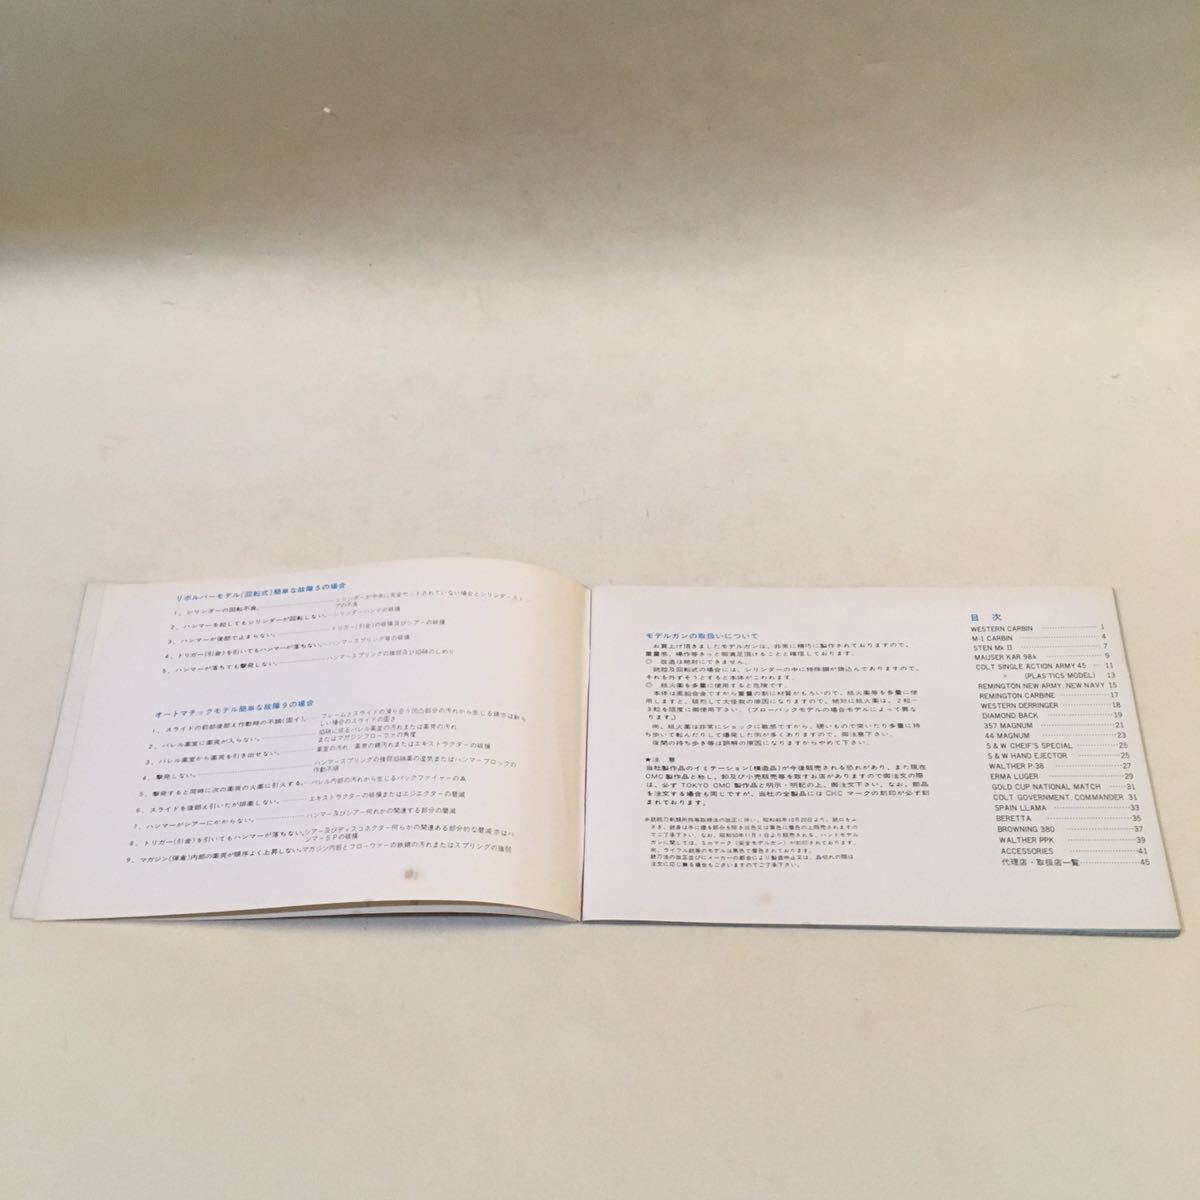 リボルバーモデル(回転式)簡単な故障5の場合
1、シリンダーの回転不良。………シリンダーが中央に完全セットされていない場合とシリンダーストッ
プの不良
2、ハンマーを起してもシリンダーが回転しない。…シリンダーハンドの破損
3、ハンマーが後部で止まらない。………トリガー(引金)の破損及びシアーの破損
4、トリガー(引金)を引いてもハンマーが落ちない。…ハンマースプリング等の破損
5、ハンマーが落ちても撃発しない。………ハンマースプリングの強弱及び
オートマチックモデル簡単な故障9の場合
1、スライドの前部後部え作動時の不調(固イ)。…フレームとスライドの滑り合う凹凸部分の汚れから生じる錆や
しい場合のスライドの固さ
2、バレル薬室に薬莢が入らない。
またはマガジンフローワァの角度
3、バレル薬室から薬莢を引き出せない。………薬室の汚れ、薬莢の錆汚れまたはエキストラクターの破損
4、撃発しない。………ハンマースプリングの強弱
作動不順
5、撃発すると同時に次の薬莢の火薬に引火する。…バレル内部の汚れから生じるバックファイヤーの為
6、スライドを後部え引いたが排薬しない。………エキストラクターの破損またはエジェクターの磨滅
7、ハンマーがシアーにかからない。………ハンマー及びシアー何れかの関連する部分の磨滅
8、トリガー(引金)を引いてもハンマーが落ちない。シアー及びディスコネクター何らかの関連ある部分的な磨滅亦はハ
ンマーSPの破損
9、マガジン(弾倉)内部の薬莢が順序よく上昇しない。マガジン内部とフローワァーの鉄錆の汚れまたはスプリングの強弱
モデルガンの取扱いについて
お買上げ頂きましたモデルガンは、非常に精巧に製作されておりますので、
重量感、操作等きっと御満足頂けることと確信しております。
◎ 改造は絶対にできません。
銃腔及回転式の場合には、シリンダーの中に特殊鋼が鋳込んでありますので、
それを外そうとすると本体がこわれます。
◎ 紙火薬を多量に使用すると危険です。
本体は亜鉛合金ですから重量の割に材質がもろいので、紙火薬等を多量に使
用しますと、破裂して大怪我の原因になりますので、絶対に紙火薬は、2粒-
3粒を限度に御使用下さい。(ブローバックモデルの場合モデルによって異な
ります。)
尚、紙火薬は非常にショックに敏感ですから、硬いもので突いたり多量に持
ち歩いて転んだりして爆発した例が多くありますので、御注意下さい。
夜間の持ち歩き等は誤解の原因になりますからやめて下さい。
★注 意
当社製作品のイミテーション(模造品)が今後販売される恐れがあり、また現在
CMC製作品と称し、卸及び小売販売等を致すお店がありますので御注文の際
は、必ずTOKYO CMC製作品と明示・明記の上、御注文下さい。なお、部品
を注文する場合も同じですが、当社の全製品にはCKCマークの刻印が必ず刻
まれております。
※銃砲刀剣類所持等取締法の改正に伴い、昭和46年10月20日より、銃口をふ
さぎ、銃身は手に握る部分を除き白色又は黄色に着色の上販売されますので
ご了承下さい。なお、昭和50年11月1日より販売される、ハンドモデル
ガンに関しては、Smマーク(安全モデルガン)が刻印されております。
尚、ライフル銃等のモデルは黒色で着色されております。
銃刀法の改正並びにメーカーの都合により製造中止又は、品切れの際は
注文に応じ兼る場合もございますのでご了承下さい。
目 次
WESTERN CARBIN ………… 1
M-1 CARBIN ………… 4
STEN Mk II ………… 7
MAUSER KAR 98k ………… 9
COLT SINGLE ACTION ARMY 45 … 11
〃 (PLASTICS MODEL) 13
REMINGTON NEW ARMY, NEW NAVY 15
REMINGTON CARBINE ………… 17
WESTERN DERRINGER ………… 18
DIAMOND BACK ………… 19
357 MAGNUM ………… 21
44 MAGNUM ………… 23
S & W CHEIF'S SPECIAL ………… 25
S & W HAND EJECTOR ………… 25
WALTHER P-38 ………… 27
ERMA LUGER ………… 29
GOLD CUP NATIONAL MATCH …… 31
COLT GOVERNMENT, COMMANDER 31
SPAIN LLAMA ………… 33
BERETTA ………… 35
BROWNING 380 ………… 37
WALTHER PPK ………… 39
ACCESSORIES ………… 41
代理店・取扱店一覧 ………… 45